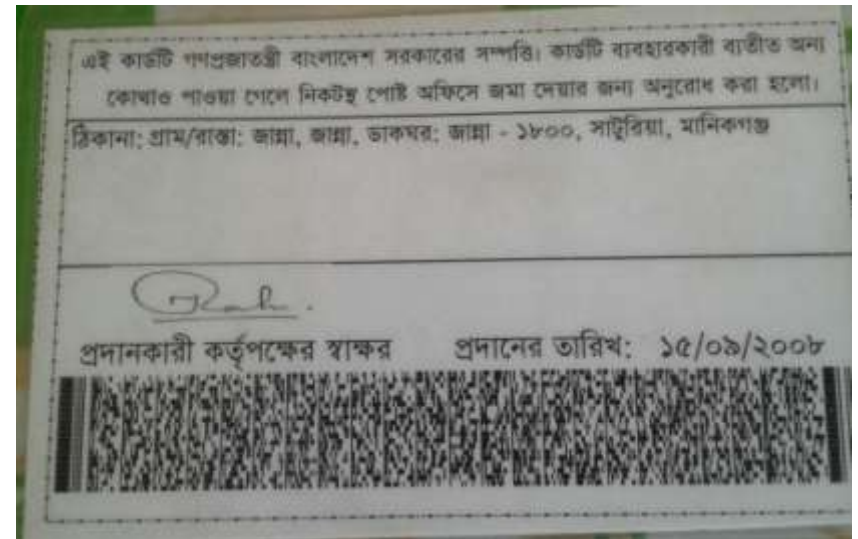 এই কার্ডটি গণপ্রজাতন্ত্রী বাংলাদেশ সরকারের সম্পত্তি। কার্ডটি ব্যবহারকারী ব্যতীত অন্য
কোথাও পাওয়া গেলে নিকটস্থ পোষ্ট অফিসে জমা দেয়ার জন্য অনুরোধ করা হলো।
ঠিকানা: গ্রাম/রাস্তা: জান্না, জান্না, ডাকঘর: জান্না - ১৮০০, সাটুরিয়া, মানিকগঞ্জ
প্রদানকারী কর্তৃপক্ষের স্বাক্ষর প্রদানের তারিখ: ১৫/০৯/২০০৮